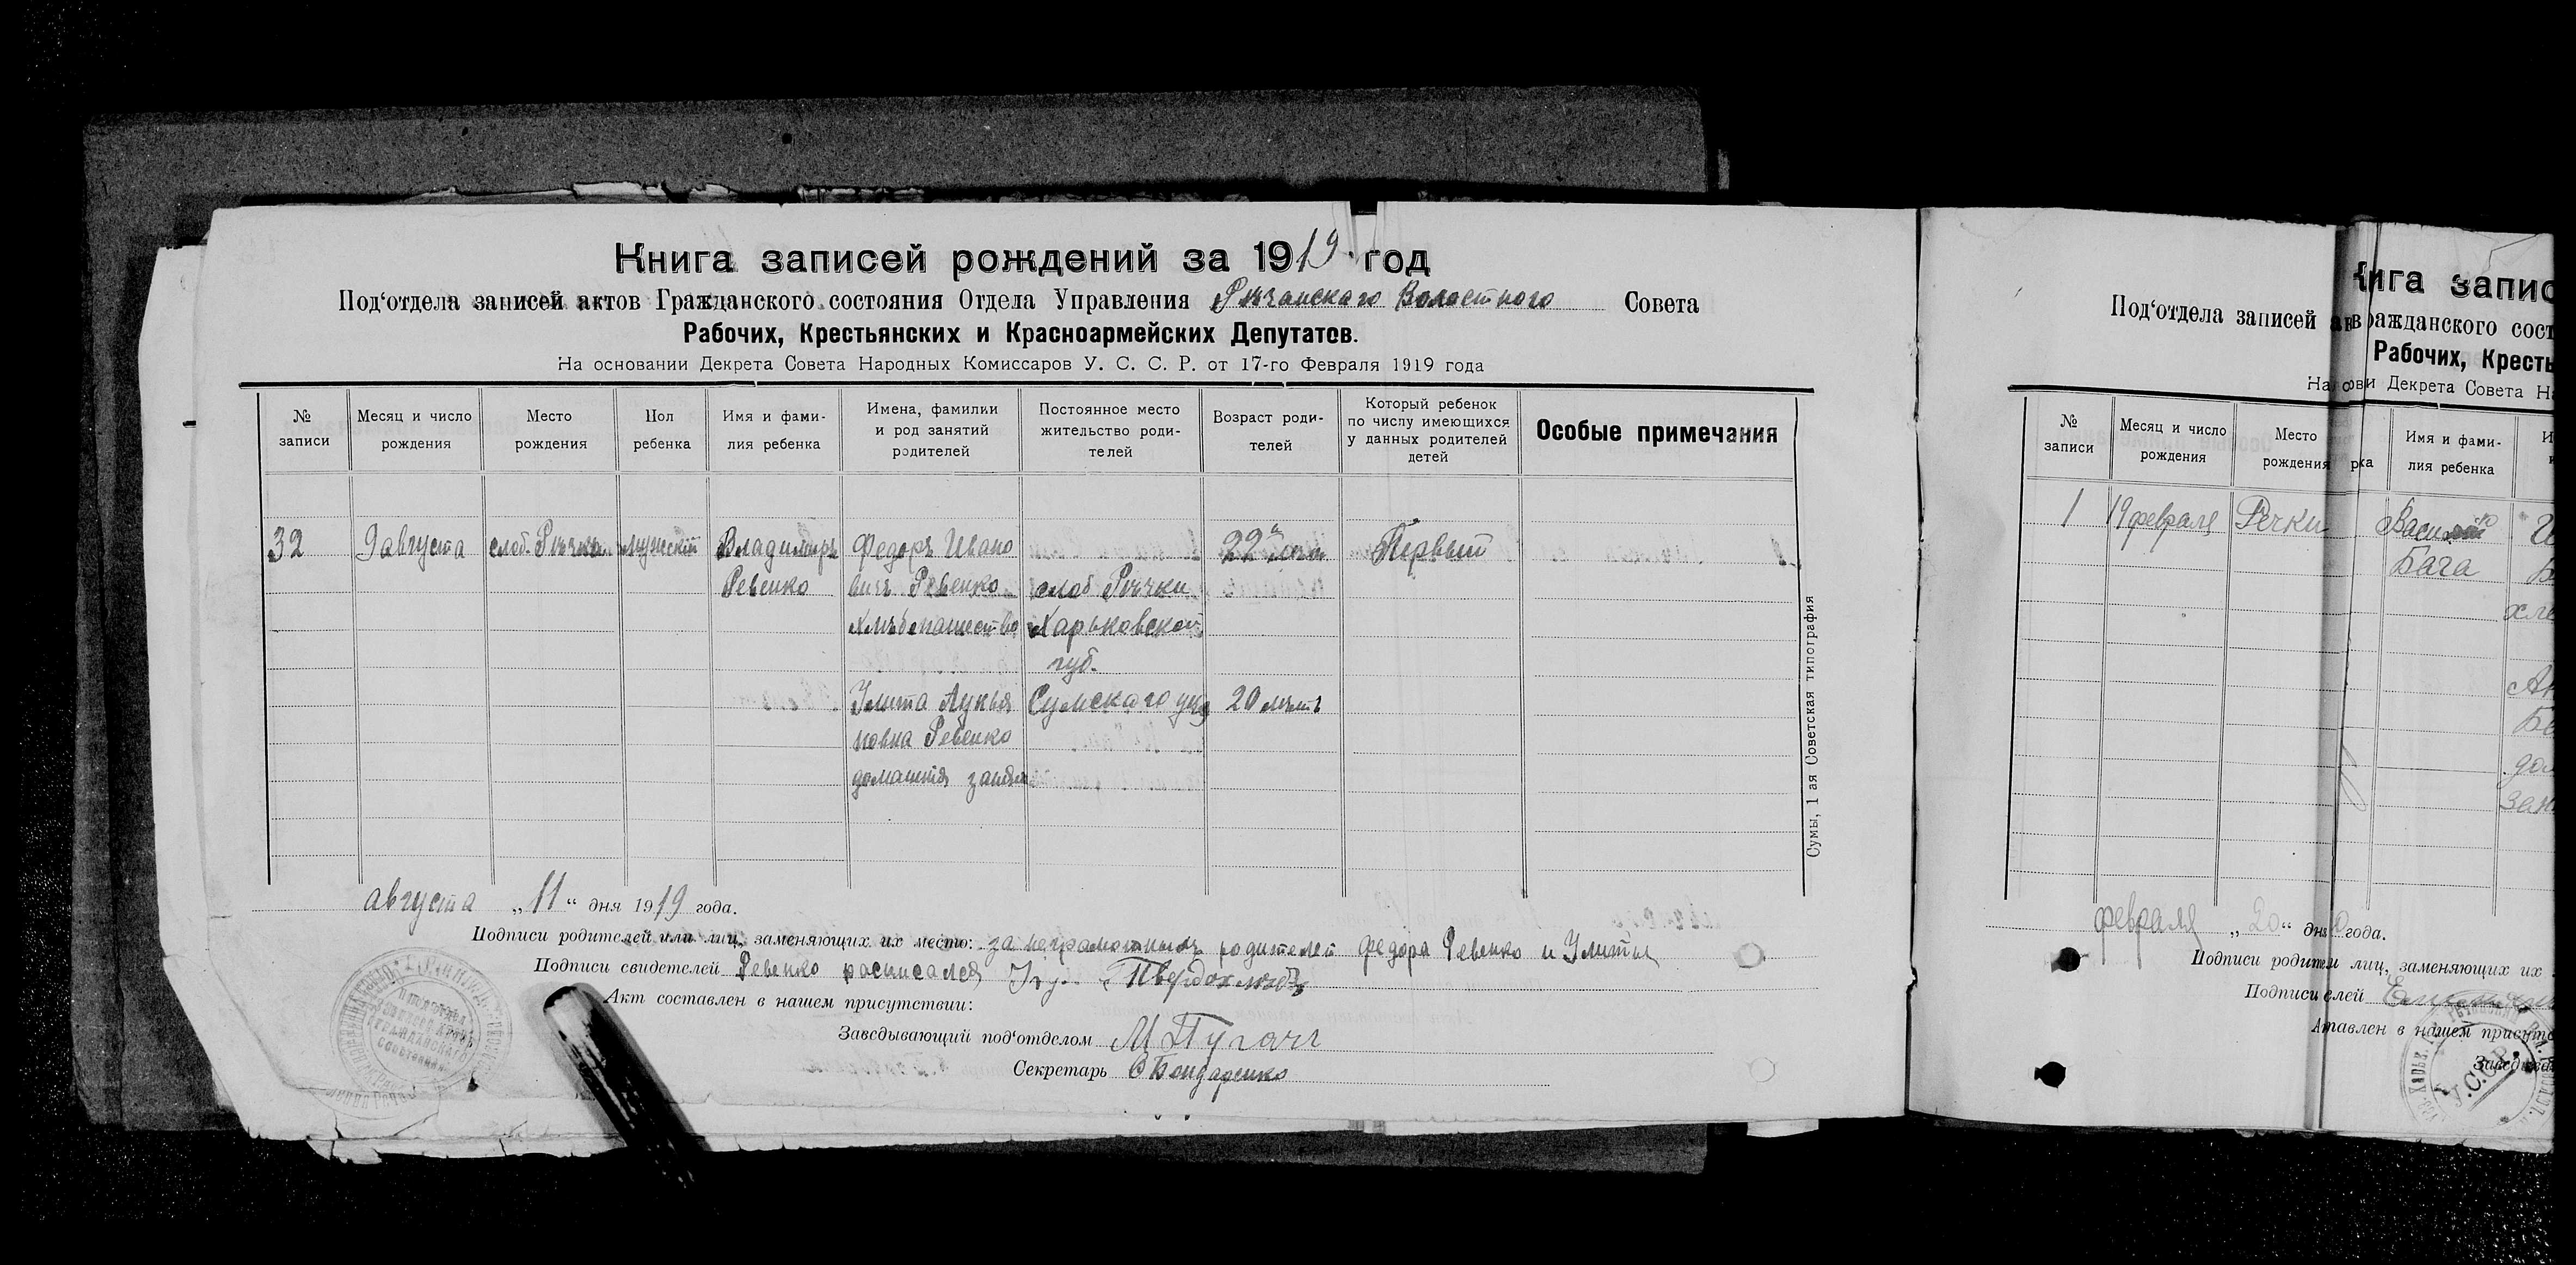 Книга записей рождений за 1919 год
Под‘отдела записей актов Гражданского состояния Отдела Управления Рѣчанскаго Волостного Совета
Рабочих, Крестьянских и Красноармейских Депутатов.
На основании Декрета Совета Народных Комиссаров У. С. С. Р. от 17-го Февраля 1919 года
№ записи
Месяц и число рождения
Место рождения
Пол ребенка
Имя и фами-
лия ребенка
Имена, фамилии
и род занятий
родителей
Постоянное место
жительство роди-
телей
Возраст роди-
телей
Который ребенок
по числу имеющихся
у данных родителей
детей
Особые примечания
32
9 августа
слоб. Рѣчки
мужской
Владимиръ
Ревенко
Федоръ Ивано
вичъ Ревенко
хлѣбопашество
Улита Лукья
новна Ревенко
домашнія занятія
слоб Рѣчки
Харьковской
губ.
Сумскаго уѣз
22
20 лѣтъ
Первый
августа „11“ дня 1919 года.
Подписи родителей или лиц, заменяющих их место: за неграмотныхъ родителей Федора Ревенко и Улиты
Подписи свидетелей Ревенко расписался Твердохлѣбъ
Акт составлен в нашем присутствии:
Заведывающий под‘отделом М Пугачъ
Секретарь Бондаренко
Сумы, 1 ая Советская типография
ига запис
Под‘отдела записей ражданского сост
Рабочих, Кресть
Декрета Совета На
№ записи
Месяц и число
рождения
Место
рождения
Имя и фами-
лия ребенка
1
19 февраля
Речки
Васи
Бага
февраля „20“ дн года.
Подписи родител лиц, заменяющих их
Подписи елей
тавлен в нашем присутс
Завед
У.С.С.Р.